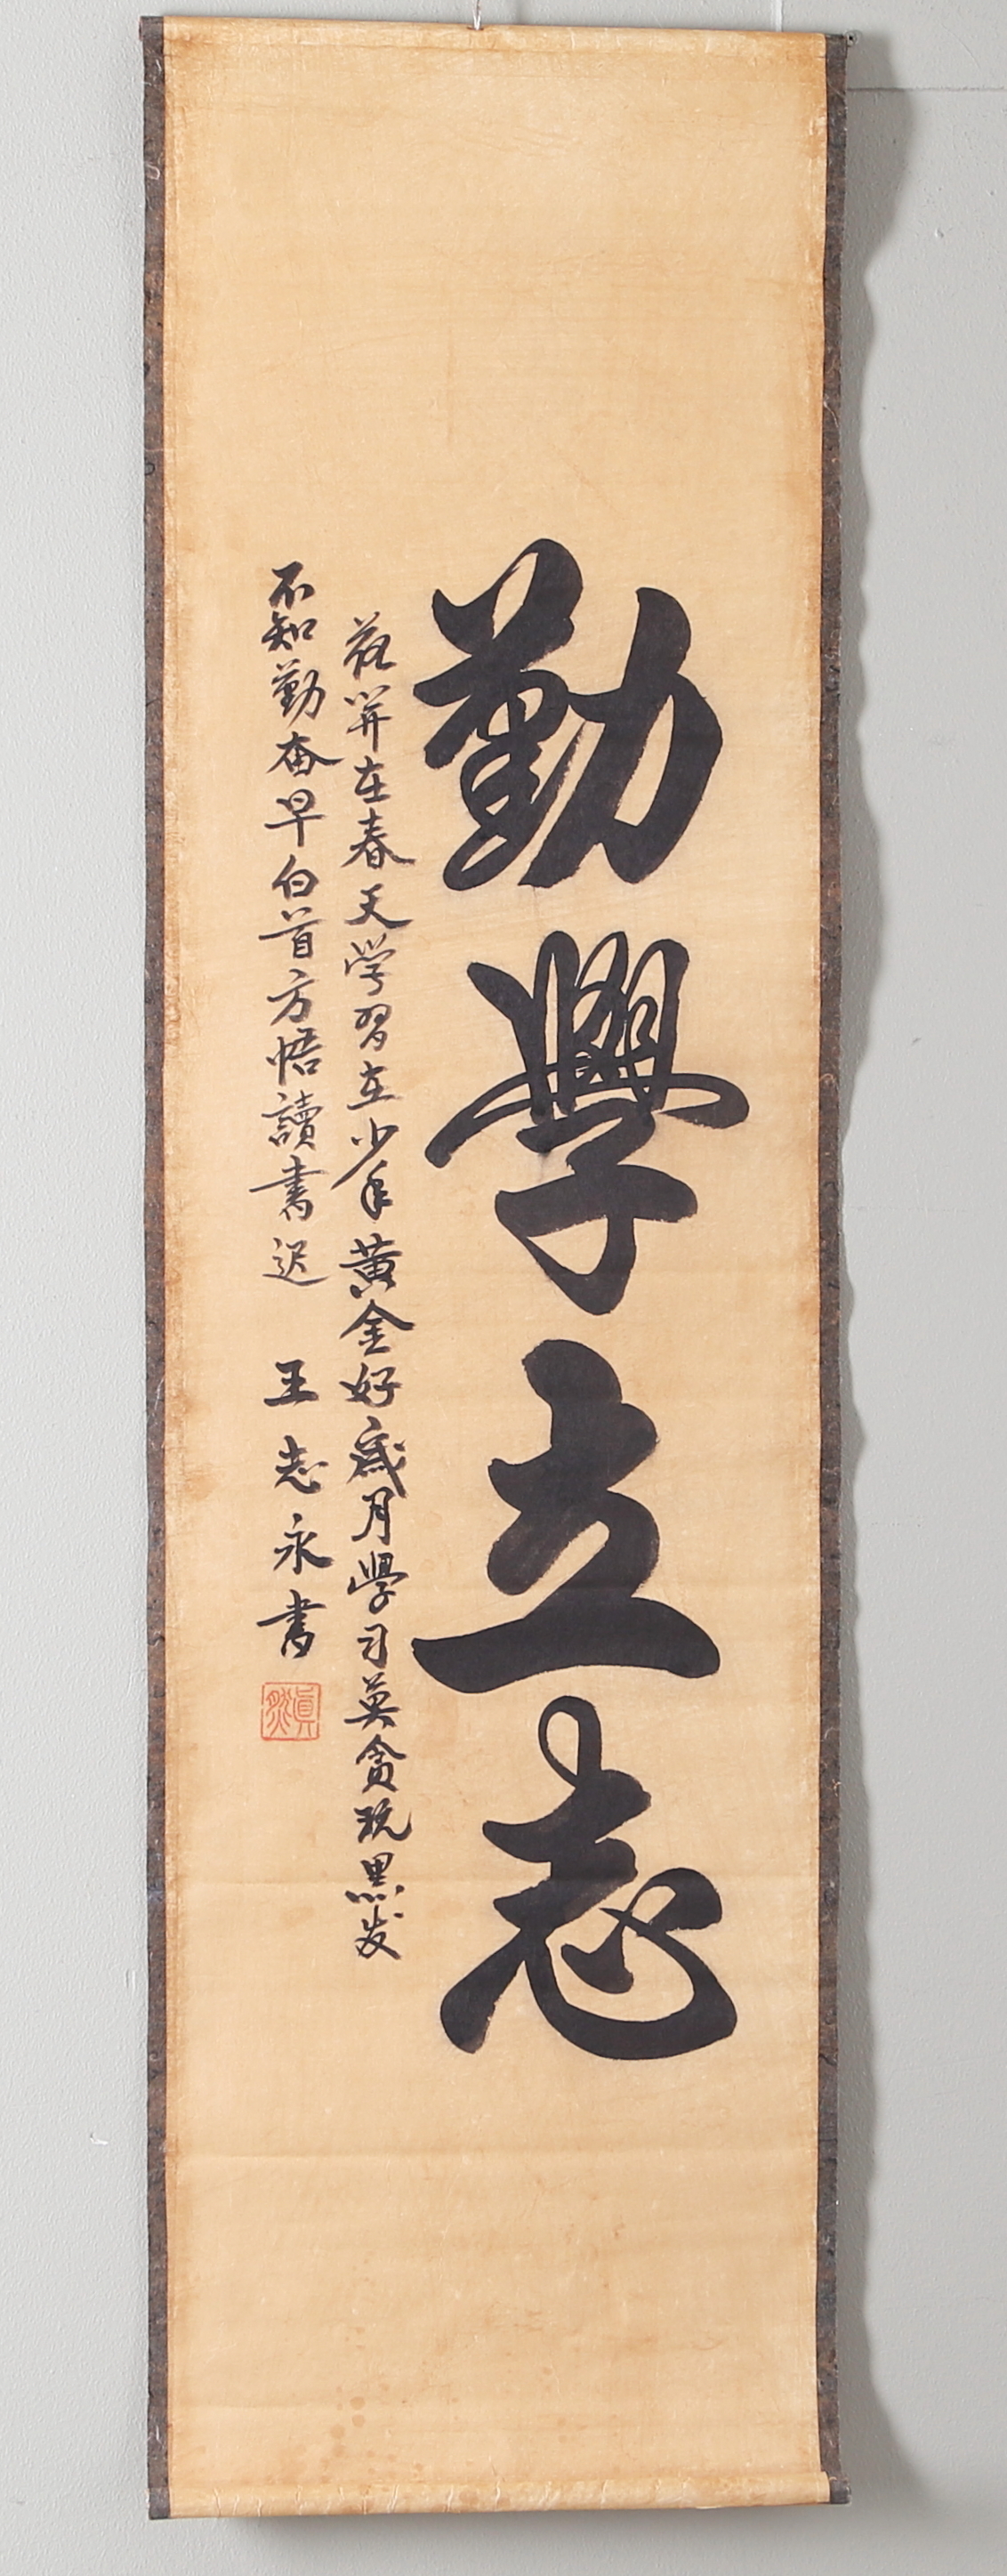 勤學立志
花開在春天学習在少年黄金好歲月學习莫貪玩黑发
不知勤奋早白首方悟讀書迟 王志永書